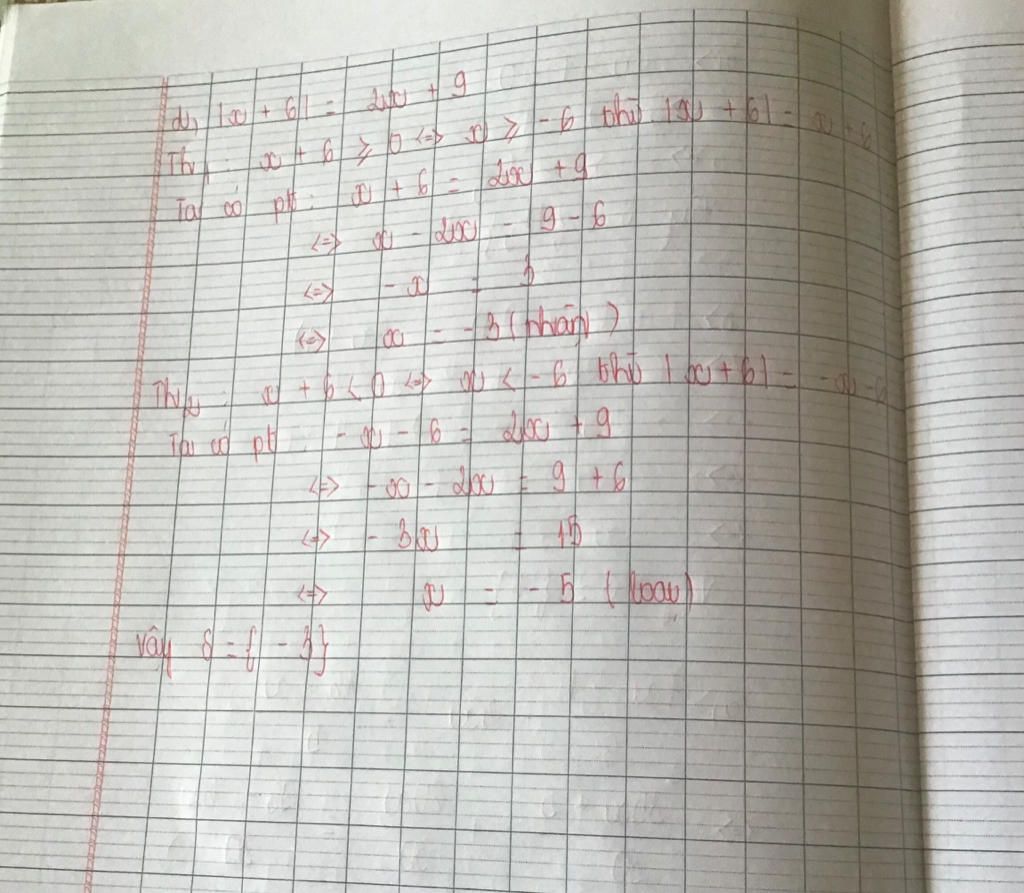 d, |x + 6| = 2x + 9
Th1: x + 6 ≥ 0 <=> x ≥ -6 thì |x + 6| = x + 6
Ta có pt: x + 6 = 2x + 9
<=> x - 2x = 9 - 6
<=> - x = 3
<=> x = - 3 (nhận)
Th2: x + 6 < 0 <=> x < - 6 thì |x + 6| = - x - 6
Ta có pt: - x - 6 = 2x + 9
<=> - x - 2x = 9 + 6
<=> - 3x = 15
<=> x = - 5 (loại)
Vậy S = { - 3}